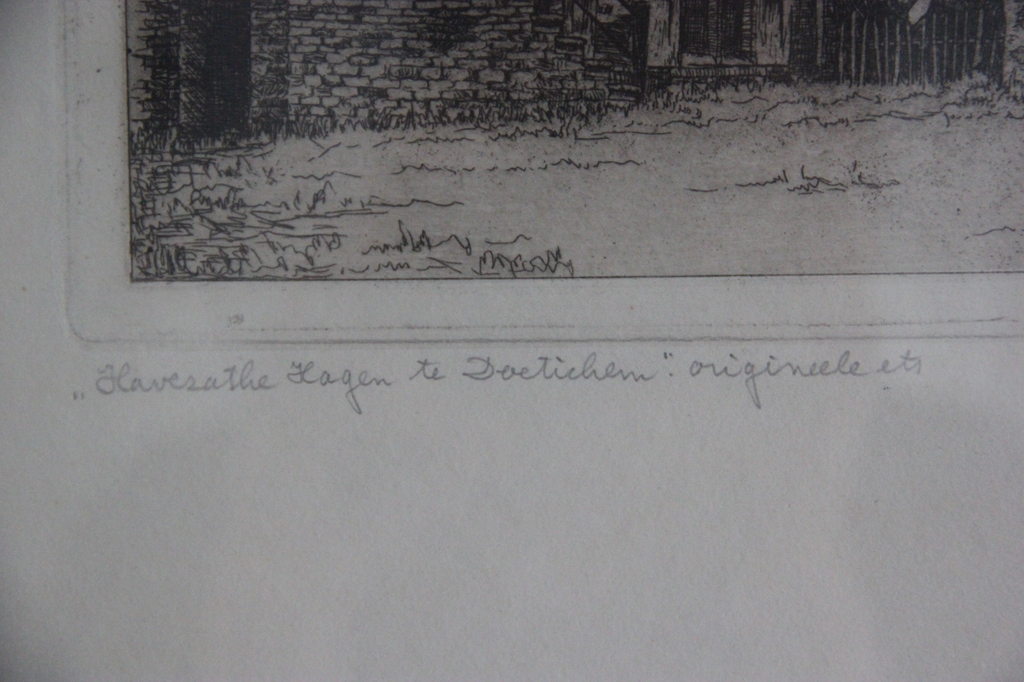 „Havezathe Hagen te Doetichem”. origineele ets